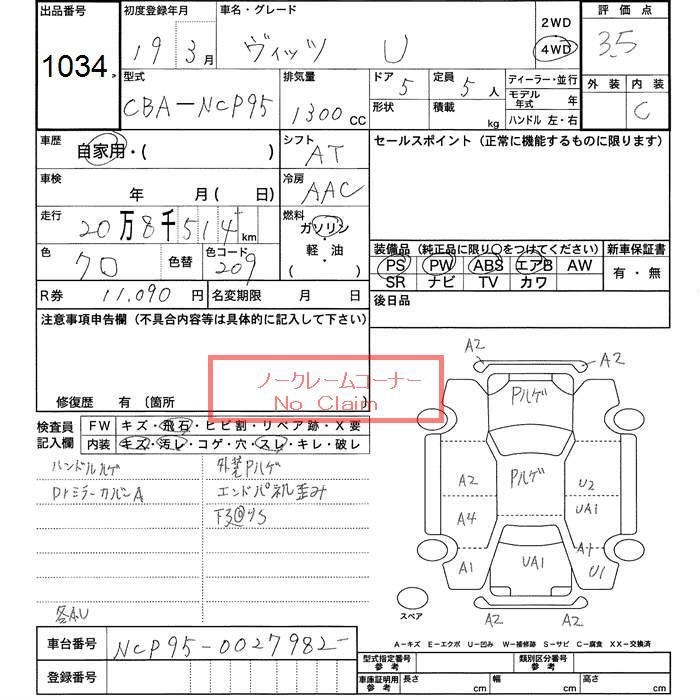 出品番号 初度登録年月 車名・グレード 評価点
1034 19 3月 ヴィッツ U 2WD 4WD 3.5
型式 排気量 ドア 定員 ディーラー・並行 外装 内装
CBA-NCP95 1300 CC 5 5人 モデル年式 年 C
形状 積載 kg ハンドル 左・右
車歴 自家用・( ) シフト AT セールスポイント (正常に機能するものに限ります)
車検 年 月 ( 日) 冷房 AAC
走行 20万8千514km 燃料 ガソリン・軽・油 ( )
色 70 色替 色コード 209
装備品 (純正品に限り○をつけてください) 新車保証書
PS PW ABS エアB AW 有・無
SR ナビ TV カワ
R券 11,090円 名変期限 月 日 後日品
注意事項申告欄 (不具合内容等は具体的に記入して下さい)
ノークレームコーナー
No Claim
修復歴 有 〔箇所
検査員記入欄 FW キズ・飛石・ヒビ割・リペア跡・X要
内装 キズ・汚レ・コゲ・穴・スレ・キレ・破レ
ハンドルハゲ 外装Pハゲ
Drミラーカバー A エンドパネル歪み
下回りS
各A.U
A2 A2
Pハゲ
A2 Pハゲ U2
A4 UA1
A1 UA1 A1 U1
A2 A2
スペア
A-キズ E-エクボ U-凹み W-補修跡 S-サビ C-腐食 XX-交換済
車台番号 NCP95-0027982-
登録番号
型式指定番号 参考 類別区分番号 参考
車庫証明用 参考 長さ cm 幅 cm 高さ cm